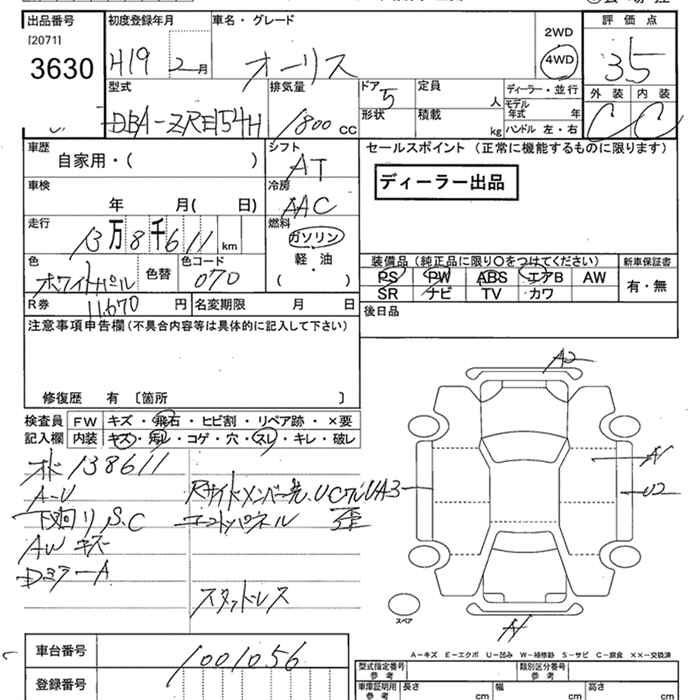 出品番号 初度登録年月 車名・グレード 2WD 評価点
[2071]
3630 H19 2月 オーリス 4WD 35
型式 排気量 ドア 定員 ディーラー・並行 外装 内装
DBA-ZRE154H 1800 CC 5 人 モデル年式 年 C C
形状 積載 kg ハンドル 左・右
車歴 シフト セールスポイント (正常に機能するものに限ります)
自家用・( ) AT
ディーラー出品
車検 冷房
年 月( 日) AAC
走行 燃料
13万8千611 km ガソリン
軽・油
( ・ )
色 色替 色コード 装備品 (純正品に限り○をつけてください) 新車保証書
ホワイトパール 070 PS PW ABS エアB AW 有・無
SR ナビ TV カワ
R券 11,670 円 名変期限 月 日 後日品
注意事項申告欄 (不具合内容等は具体的に記入して下さい)
修復歴 有 [箇所 ]
検査員 FW キズ・飛石・ヒビ割・リペア跡・×要
記入欄 内装 キズ・汚レ・コゲ・穴・スレ・キレ・破レ
138611
A-U Rサイドメンバー先
下廻りS.C 歪
AW キズ
Dミラー A
スタッドレス
A2
A1
U2
UA3
A1
スペア
A-キズ E-エクボ U-凹み W-補修跡 S-サビ C-腐食 ××-交換済
車台番号 1001056
登録番号
型式指定番号 参考 類別区分番号 参考
車庫証明用 参考 長さ cm 幅 cm 高さ cm